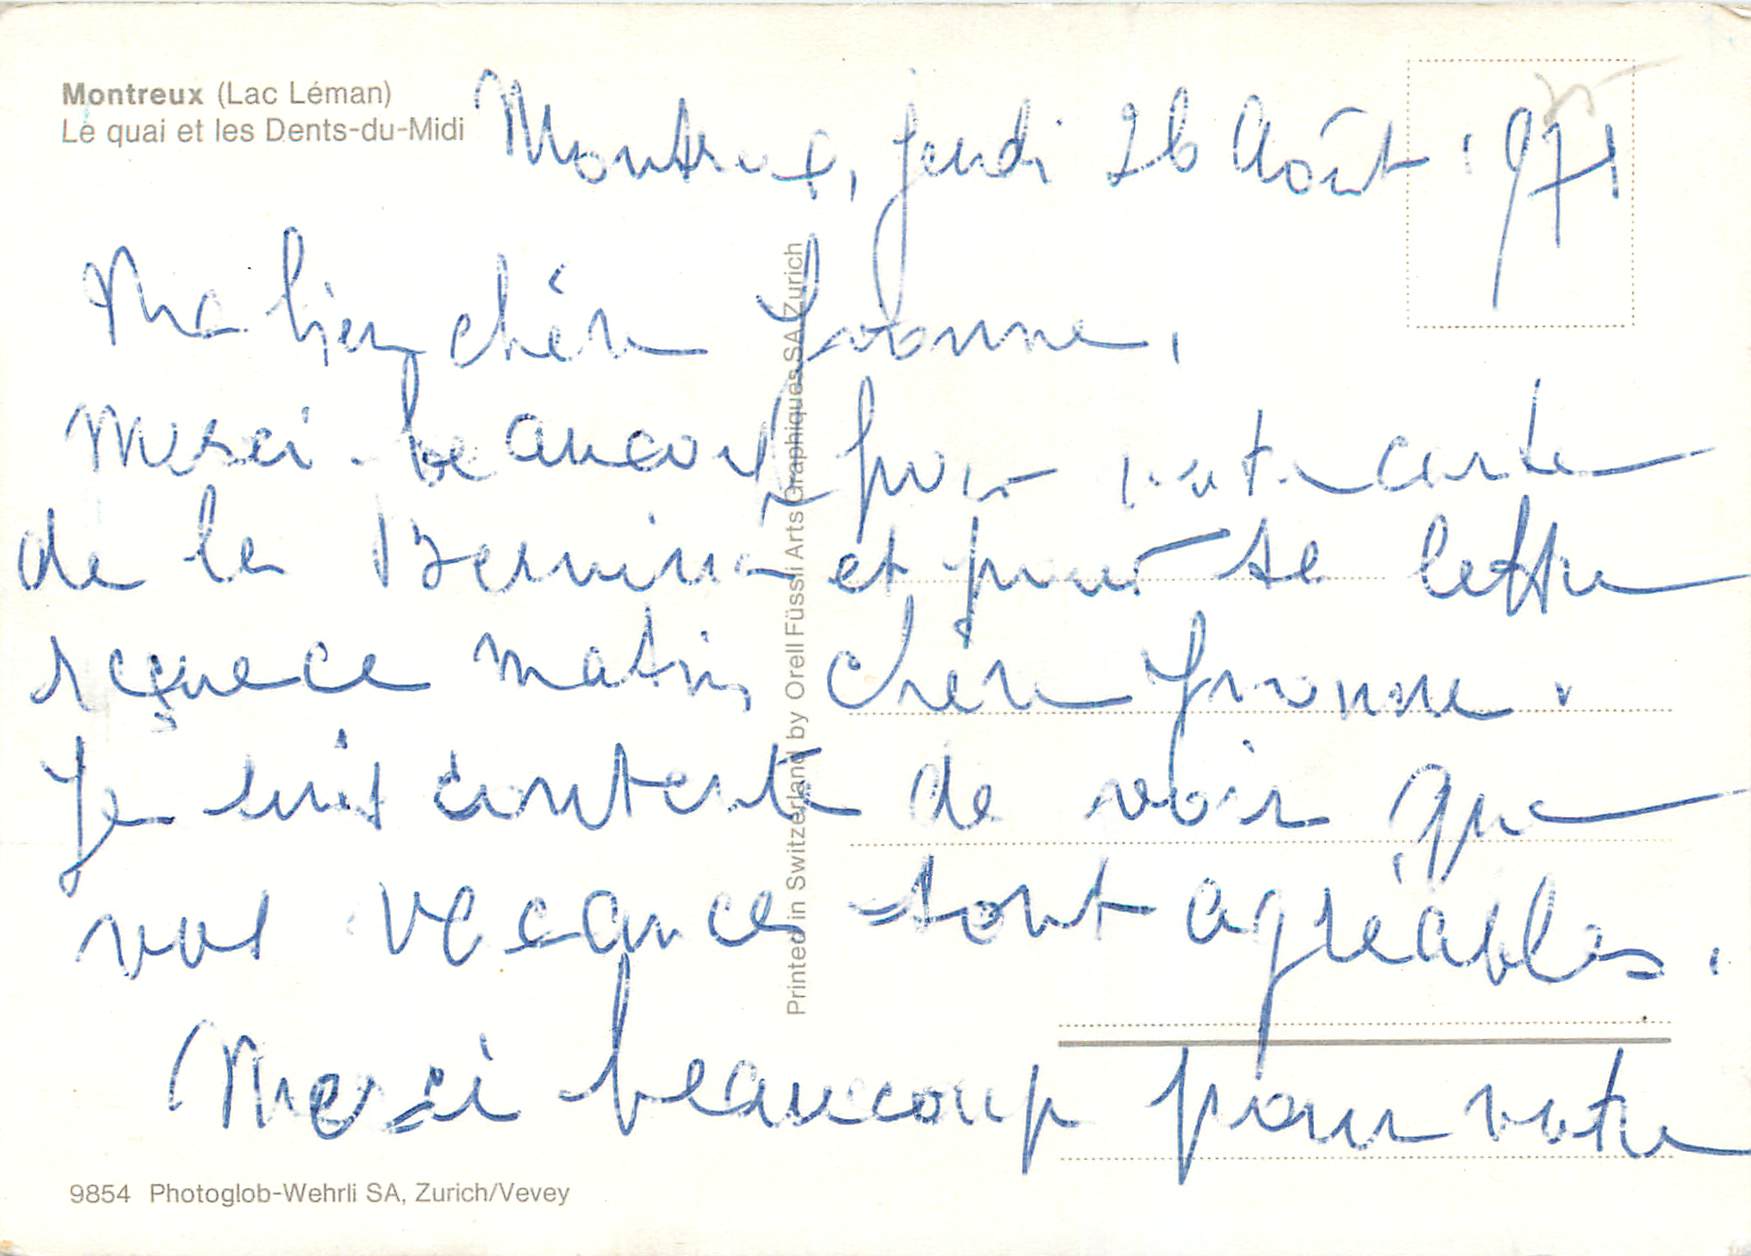 Montreux (Lac Léman)
Le quai et les Dents-du-Midi
Montreux, jeudi 26 Août 1971
Ma bien chère Yvonne,
Merci beaucoup pour votre carte
de la Bernina et pour la lettre
reçue ce matin chère Yvonne.
Je suis contente de voir que
vos vacances sont agréables.
Merci beaucoup pour votre
Printed in Switzerland by Orell Füssli Arts Graphiques SA Zurich
9854 Photoglob-Wehrli SA, Zurich/Vevey